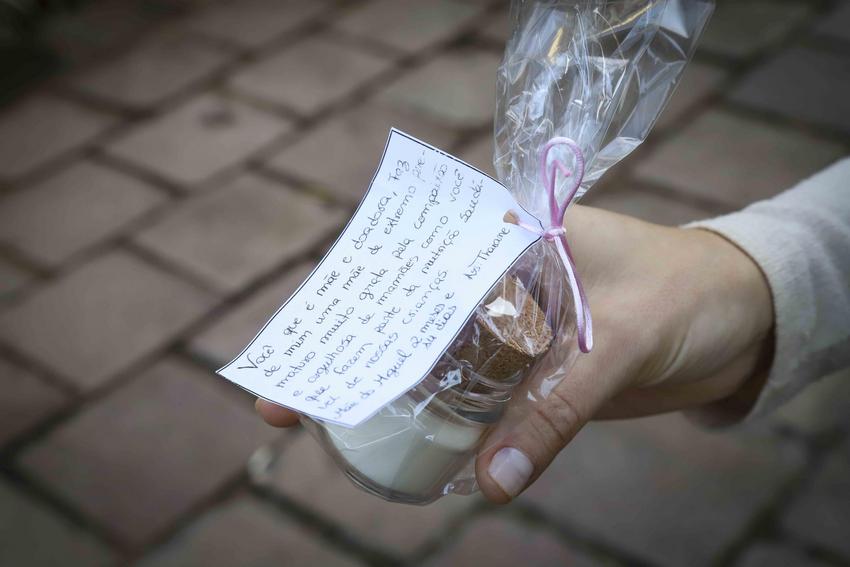 Você que é mãe e doadora, fez
de mim uma mãe de extremo pre-
maturo muito grata pela compaixão
e orgulhosa de mamães como você
que fazem parte da nutrição saudá-
vel de nossas crianças.
Mãe do Miguel 2 meses e
14 dias Ass: Thaiane